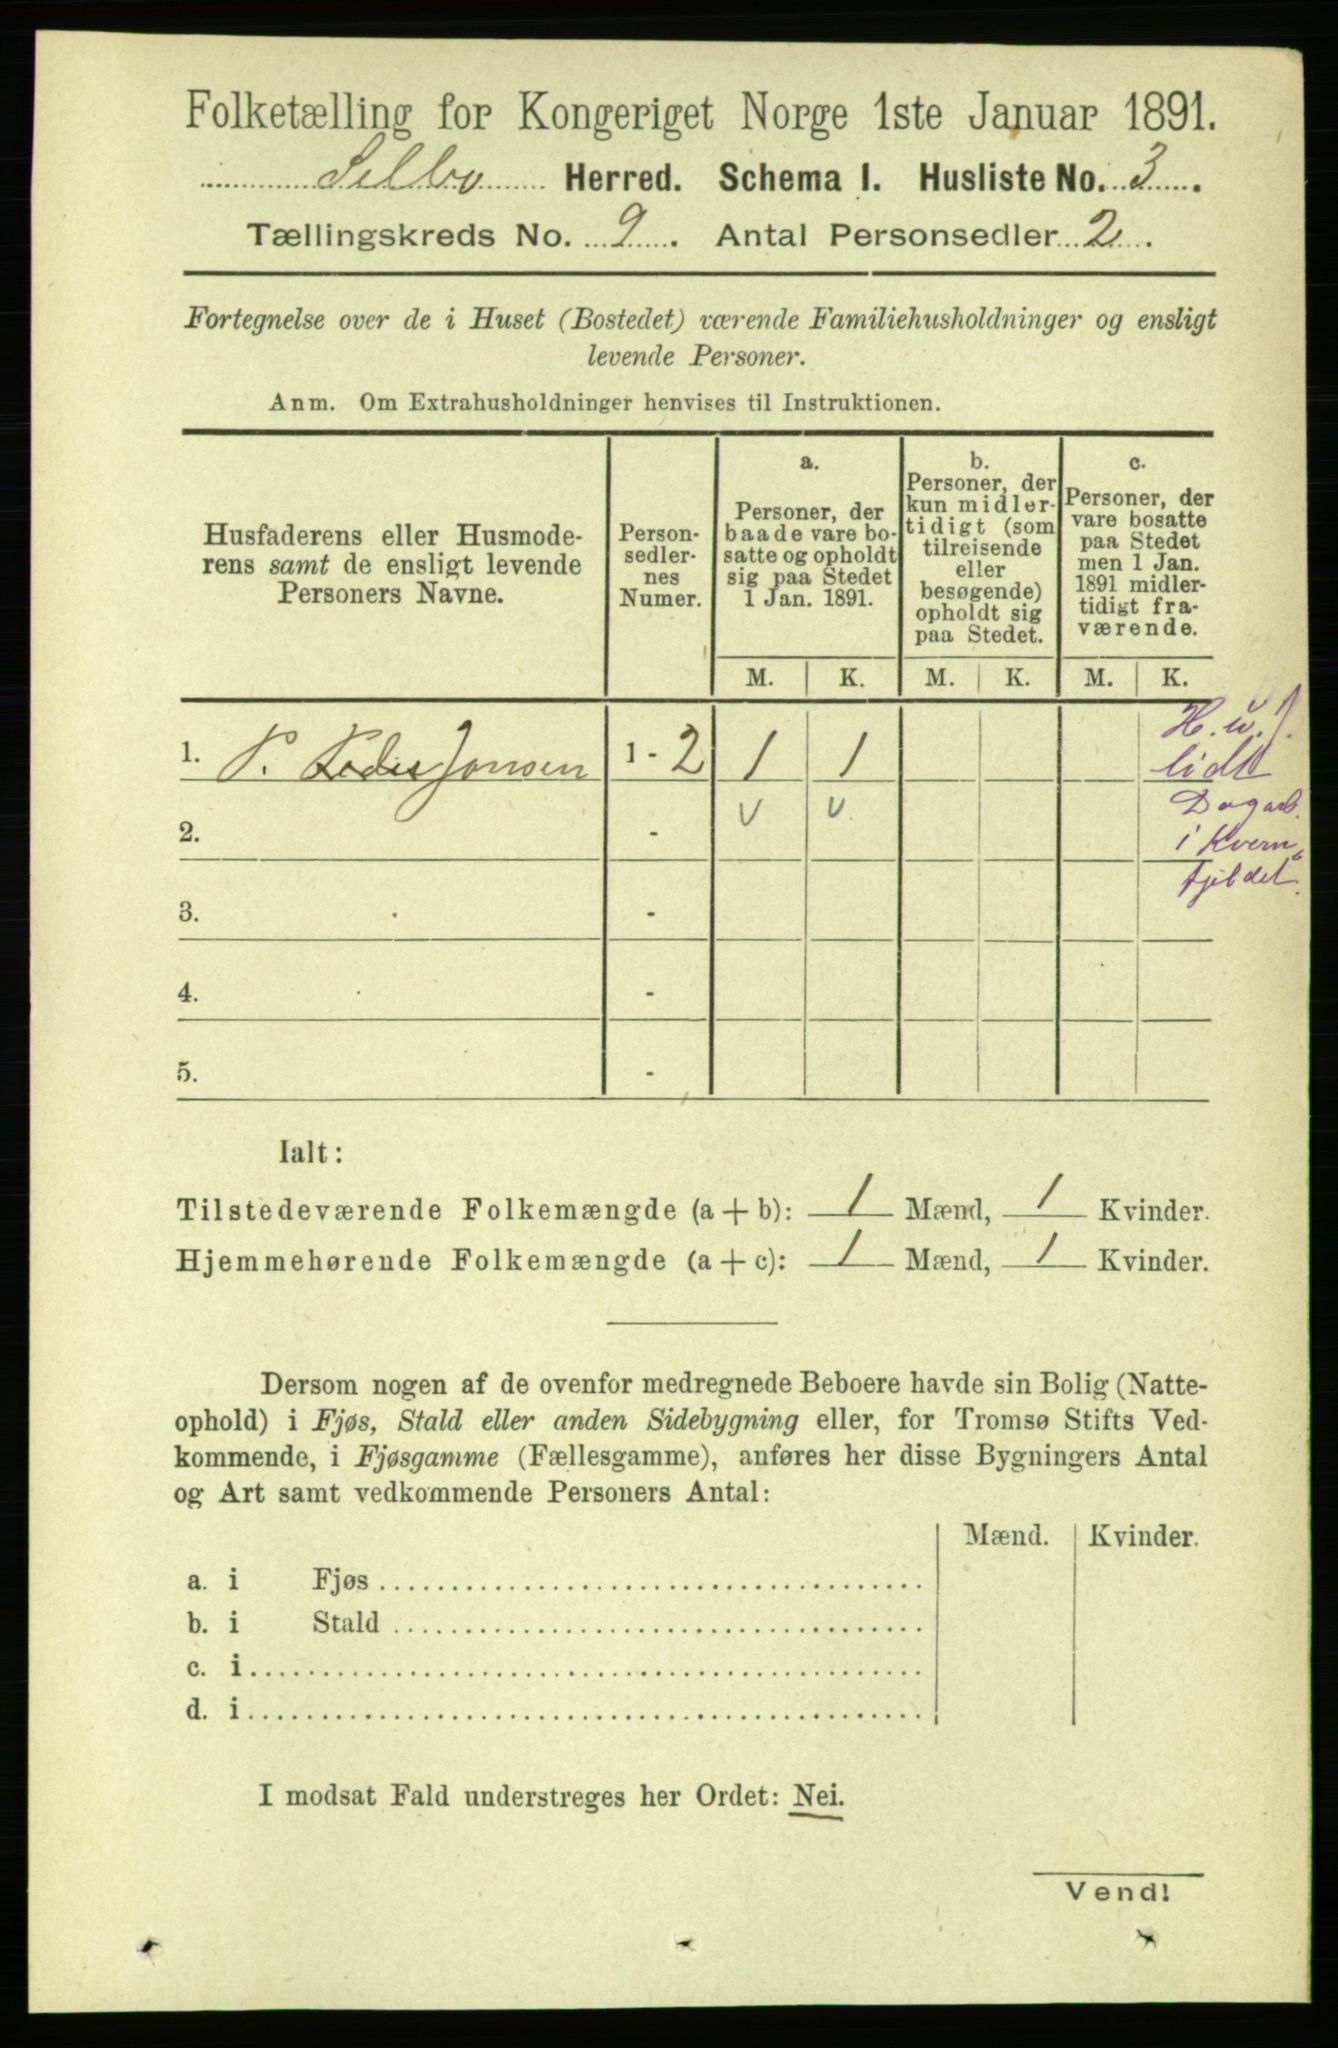 Folketælling for Kongeriget Norge 1ste Januar 1891.
Selbo Herred. Schema I. Husliste No. 3.
Tællingskreds No. 9. Antal Personsedler 2.
Fortegnelse over de i Huset (Bostedet) værende Familiehusholdninger og ensligt
levende Personer.
Anm. Om Extrahusholdninger henvises til Instruktionen.
Husfaderens eller Husmode-
rens samt de ensligt levende
Personers Navne.
Person-
sedler-
nes
Numer.
a.
Personer, der
baade vare bo-
satte og opholdt
sig paa Stedet
1 Jan. 1891.
b.
Personer, der
kun midler-
tidigt (som
tilreisende
eller
besøgende)
opholdt sig
paa Stedet.
c.
Personer, der
vare bosatte
paa Stedet
men 1 Jan.
1891 midler-
tidigt fra-
værende.
M. K. M. K. M. K.
1. P. Jonsen 1 - 2 1 1
H. u. J.
lidt
Dagarb.
i Kvern
fjeldet.
2. - v v
3. -
4. -
5. -
Ialt:
Tilstedeværende Folkemængde (a + b): 1 Mænd, 1 Kvinder.
Hjemmehørende Folkemængde (a + c): 1 Mænd, 1 Kvinder.
Dersom nogen af de ovenfor medregnede Beboere havde sin Bolig (Natte-
ophold) i Fjøs, Stald eller anden Sidebygning eller, for Tromsø Stifts Ved-
kommende, i Fjøsgamme (Fællesgamme), anføres her disse Bygningers Antal
og Art samt vedkommende Personers Antal:
Mænd. Kvinder.
a. i Fjøs
b. i Stald
c. i
d. i
I modsat Fald understreges her Ordet: Nei.
Vend!